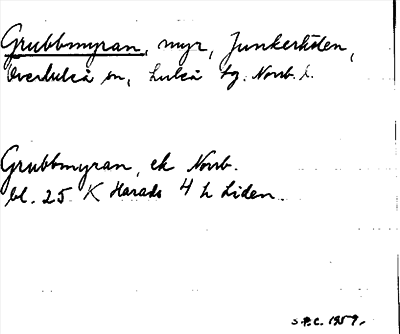 Grubbmyran, myr, Junkertiden,
Överluleå sn, Luleå tg. Norrb. l.
Grubbmyran, ek Norrb.
bl. 25 K Harads 4 h Liden.
S.P.C. 1959.